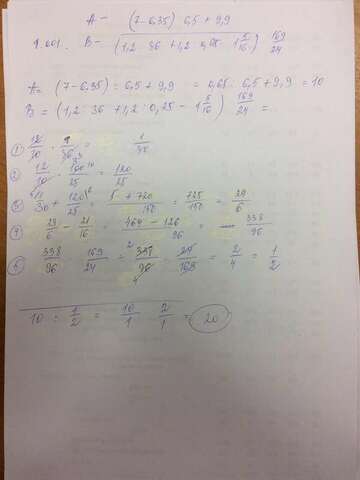 A - (7-6.35) 6,5 + 9,9
9.001. B - (1,2 36 + 1,2 0,25 1 5/16) 169/24
A = (7-6.35) : 6,5 + 9,9 = 0,65 : 6,5 + 9,9 = 10
B = (1,2 : 36 + 1,2 : 0,25 - 1 5/16) 169/24 =
① 12/10 · 1/36 = 1/30
② 12/10 · 100/25 = 120/25
③ 1/30 + 120/25 = 5 + 720/150 = 725/150 = 29/6
④ 29/6 - 21/16 = 464 - 126/96 = 338/96
⑤ 338/96 169/24 = 338/96 · 24/169 = 2/4 = 1/2
10 : 1/2 = 10/1 2/1 = 20